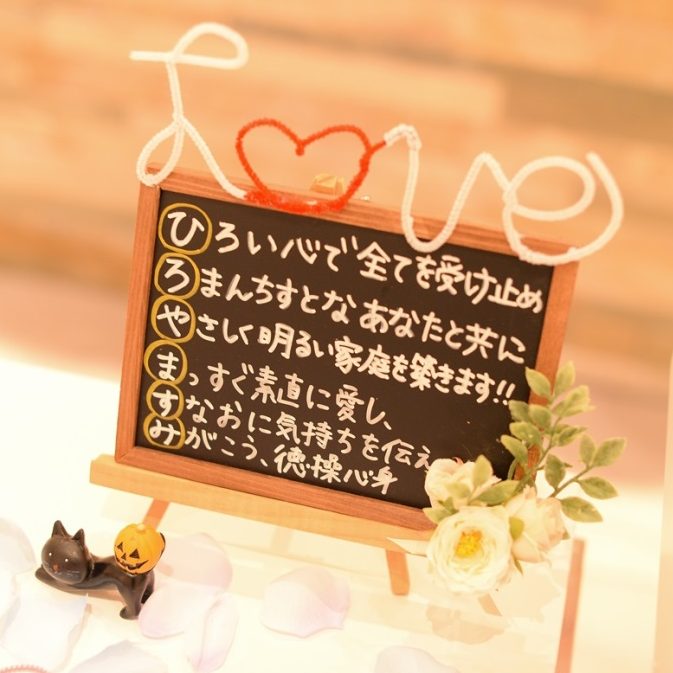 Love
ひろい心で全てを受け止め
ろまんちすとなあなたと共に
やさしく明るい家庭を築きます!!
まっすぐ素直に愛し、
すなおに気持ちを伝え
みがこう、徳・操心身